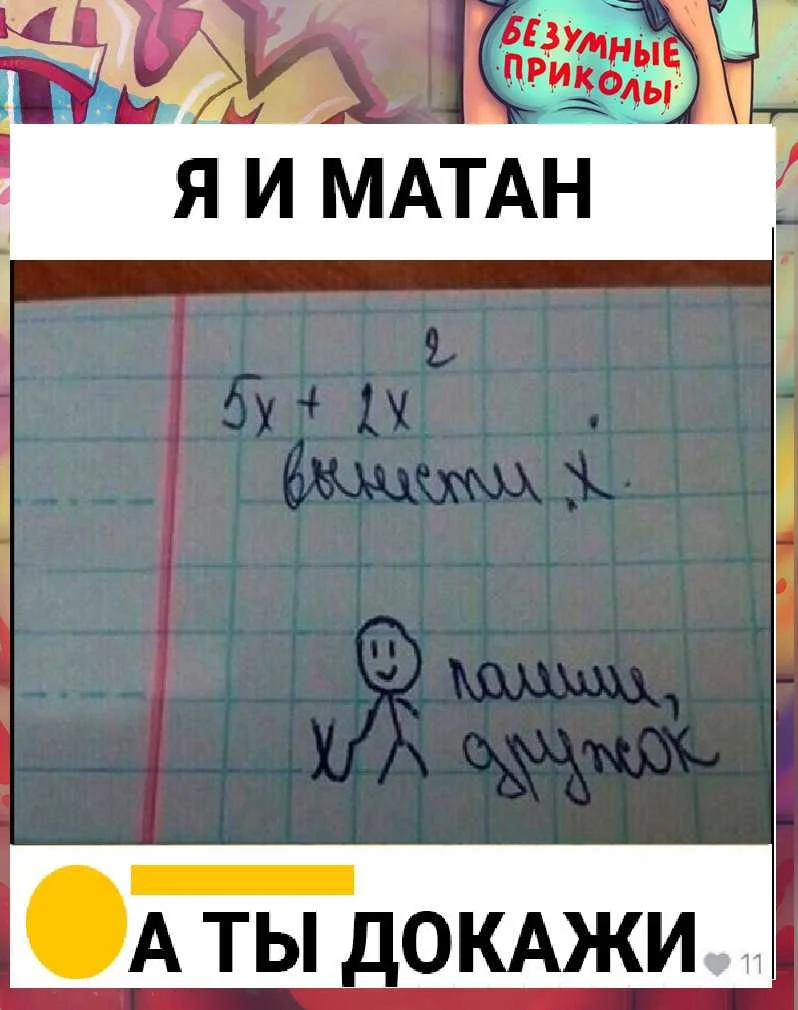 БЕЗУМНЫЕ
ПРИКОЛЫ
Я И МАТАН
5x + 2x²
вынести x.
пошли,
дружок
x
А ТЫ ДОКАЖИ
11